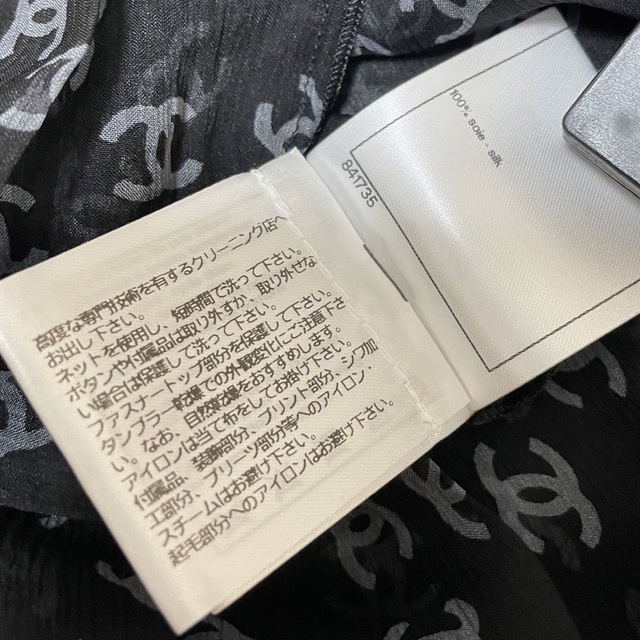 高度な専門技術を有するクリーニング店へ
お出し下さい。
ネットを使用し、短時間で洗って下さい。
ボタンや付属品は取り外すか、取り外せな
い場合は保護して洗って下さい。
ファスナートップ部分を保護して下さい。
タンブラー乾燥での外観変化にご注意下さ
い。なお、自然乾燥をおすすめします。
アイロンは当て布をしてお掛け下さい。
付属品、装飾部分、プリント部分、シワ加
工部分、プリーツ部分等へのアイロン・
スチームはお避け下さい。
起毛部分へのアイロンはお避け下さい。
841735
100% soie - silk